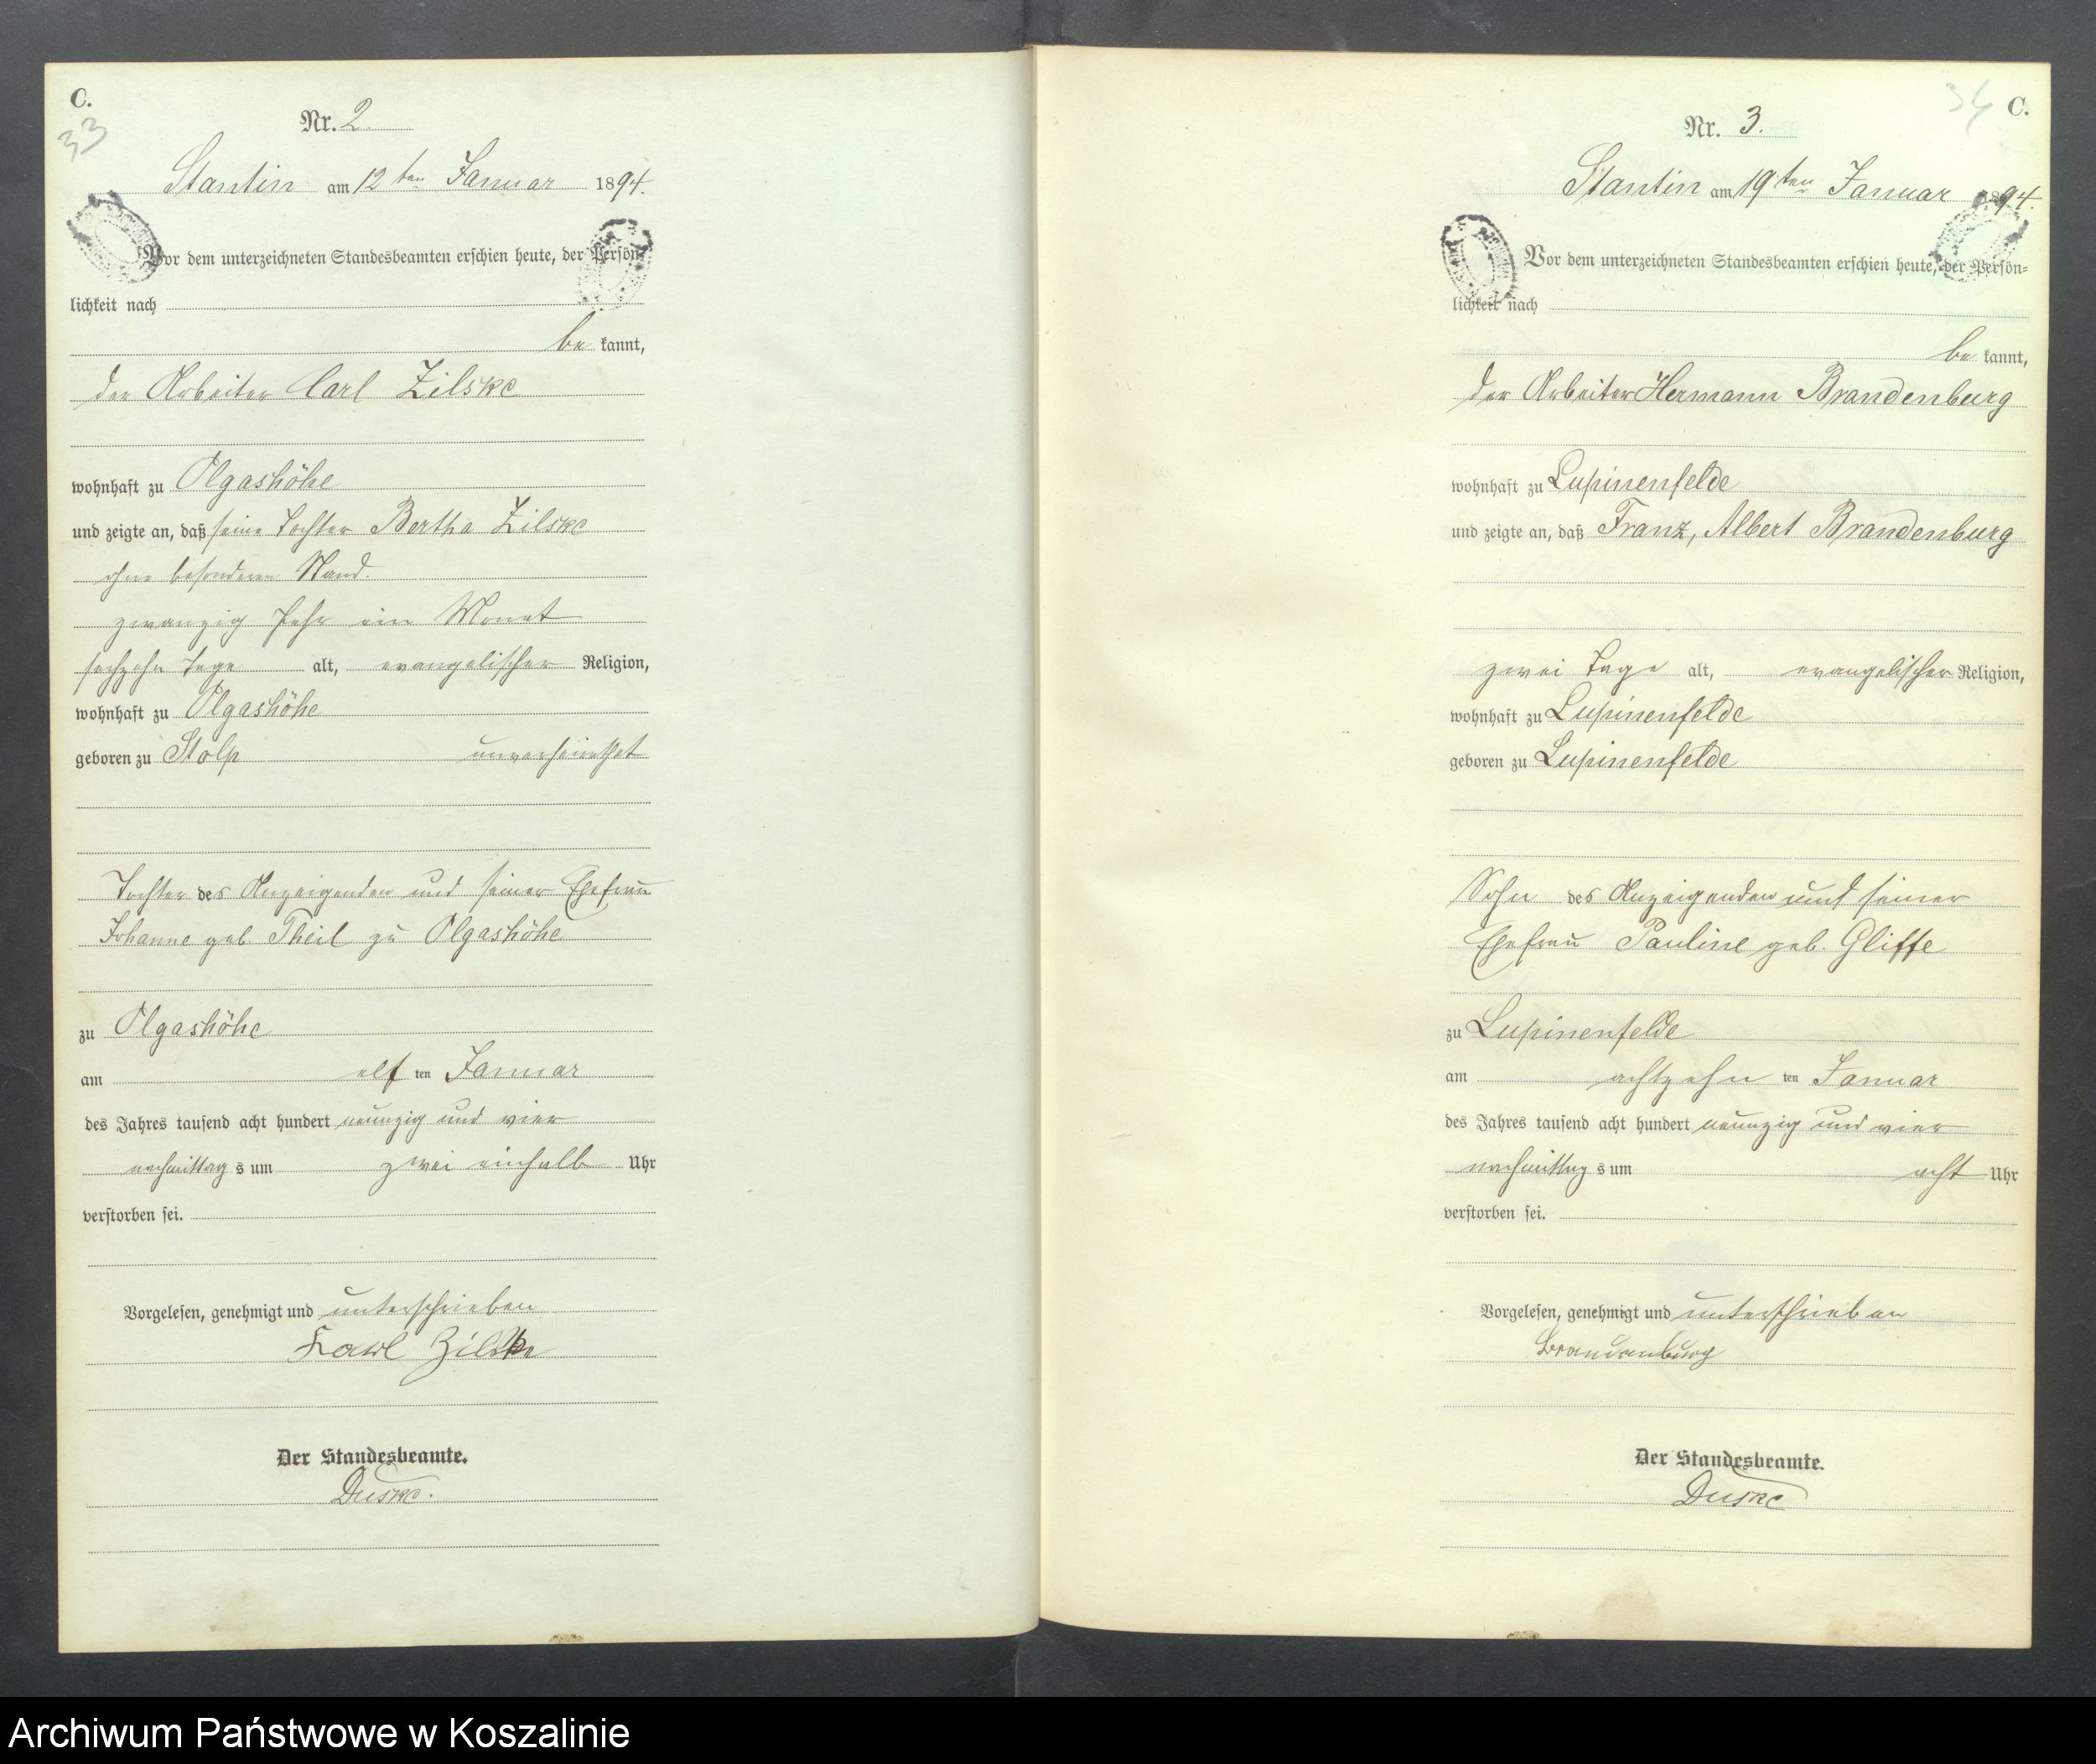 C.
33
Nr. 2.
Stantin am 12ten Januar 1894.
Vor dem unterzeichneten Standesbeamten erschien heute, der Persön-
lichkeit nach
be kannt,
der Arbeiter Carl Zilske
wohnhaft zu Olgashöhe
und zeigte an, daß seine Tochter Bertha Zilske
ohne besonderen Stand.
zwanzig Jahr ein Monat
sechzehn Tage alt, evangelischer Religion,
wohnhaft zu Olgashöhe
geboren zu Stolp unverheirathet
Tochter des Anzeigenden und seiner Ehefrau
Johanne geb. Theil zu Olgashöhe
zu Olgashöhe
am elf ten Januar
des Jahres tausend acht hundert neunzig und vier
nachmittag s um zwei einhalb Uhr
verstorben sei.
Vorgelesen, genehmigt und unterschrieben
Karl Zilske
Der Standesbeamte.
Duske.
34 C.
Nr. 3.
Stantin am 19ten Januar 1894.
Vor dem unterzeichneten Standesbeamten erschien heute, der Persön-
lichkeit nach
be kannt,
der Arbeiter Hermann Brandenburg
wohnhaft zu Lupinenfelde
und zeigte an, daß Franz, Albert Brandenburg
zwei Tage alt, evangelischer Religion,
wohnhaft zu Lupinenfelde
geboren zu Lupinenfelde
Sohn des Anzeigenden und seiner
Ehefrau Pauline geb. Gliffe
zu Lupinenfelde
am achtzehn ten Januar
des Jahres tausend acht hundert neunzig und vier
nachmittag s um acht Uhr
verstorben sei.
Vorgelesen, genehmigt und unterschrieben
Brandenburg
Der Standesbeamte.
Duske
Archiwum Państwowe w Koszalinie